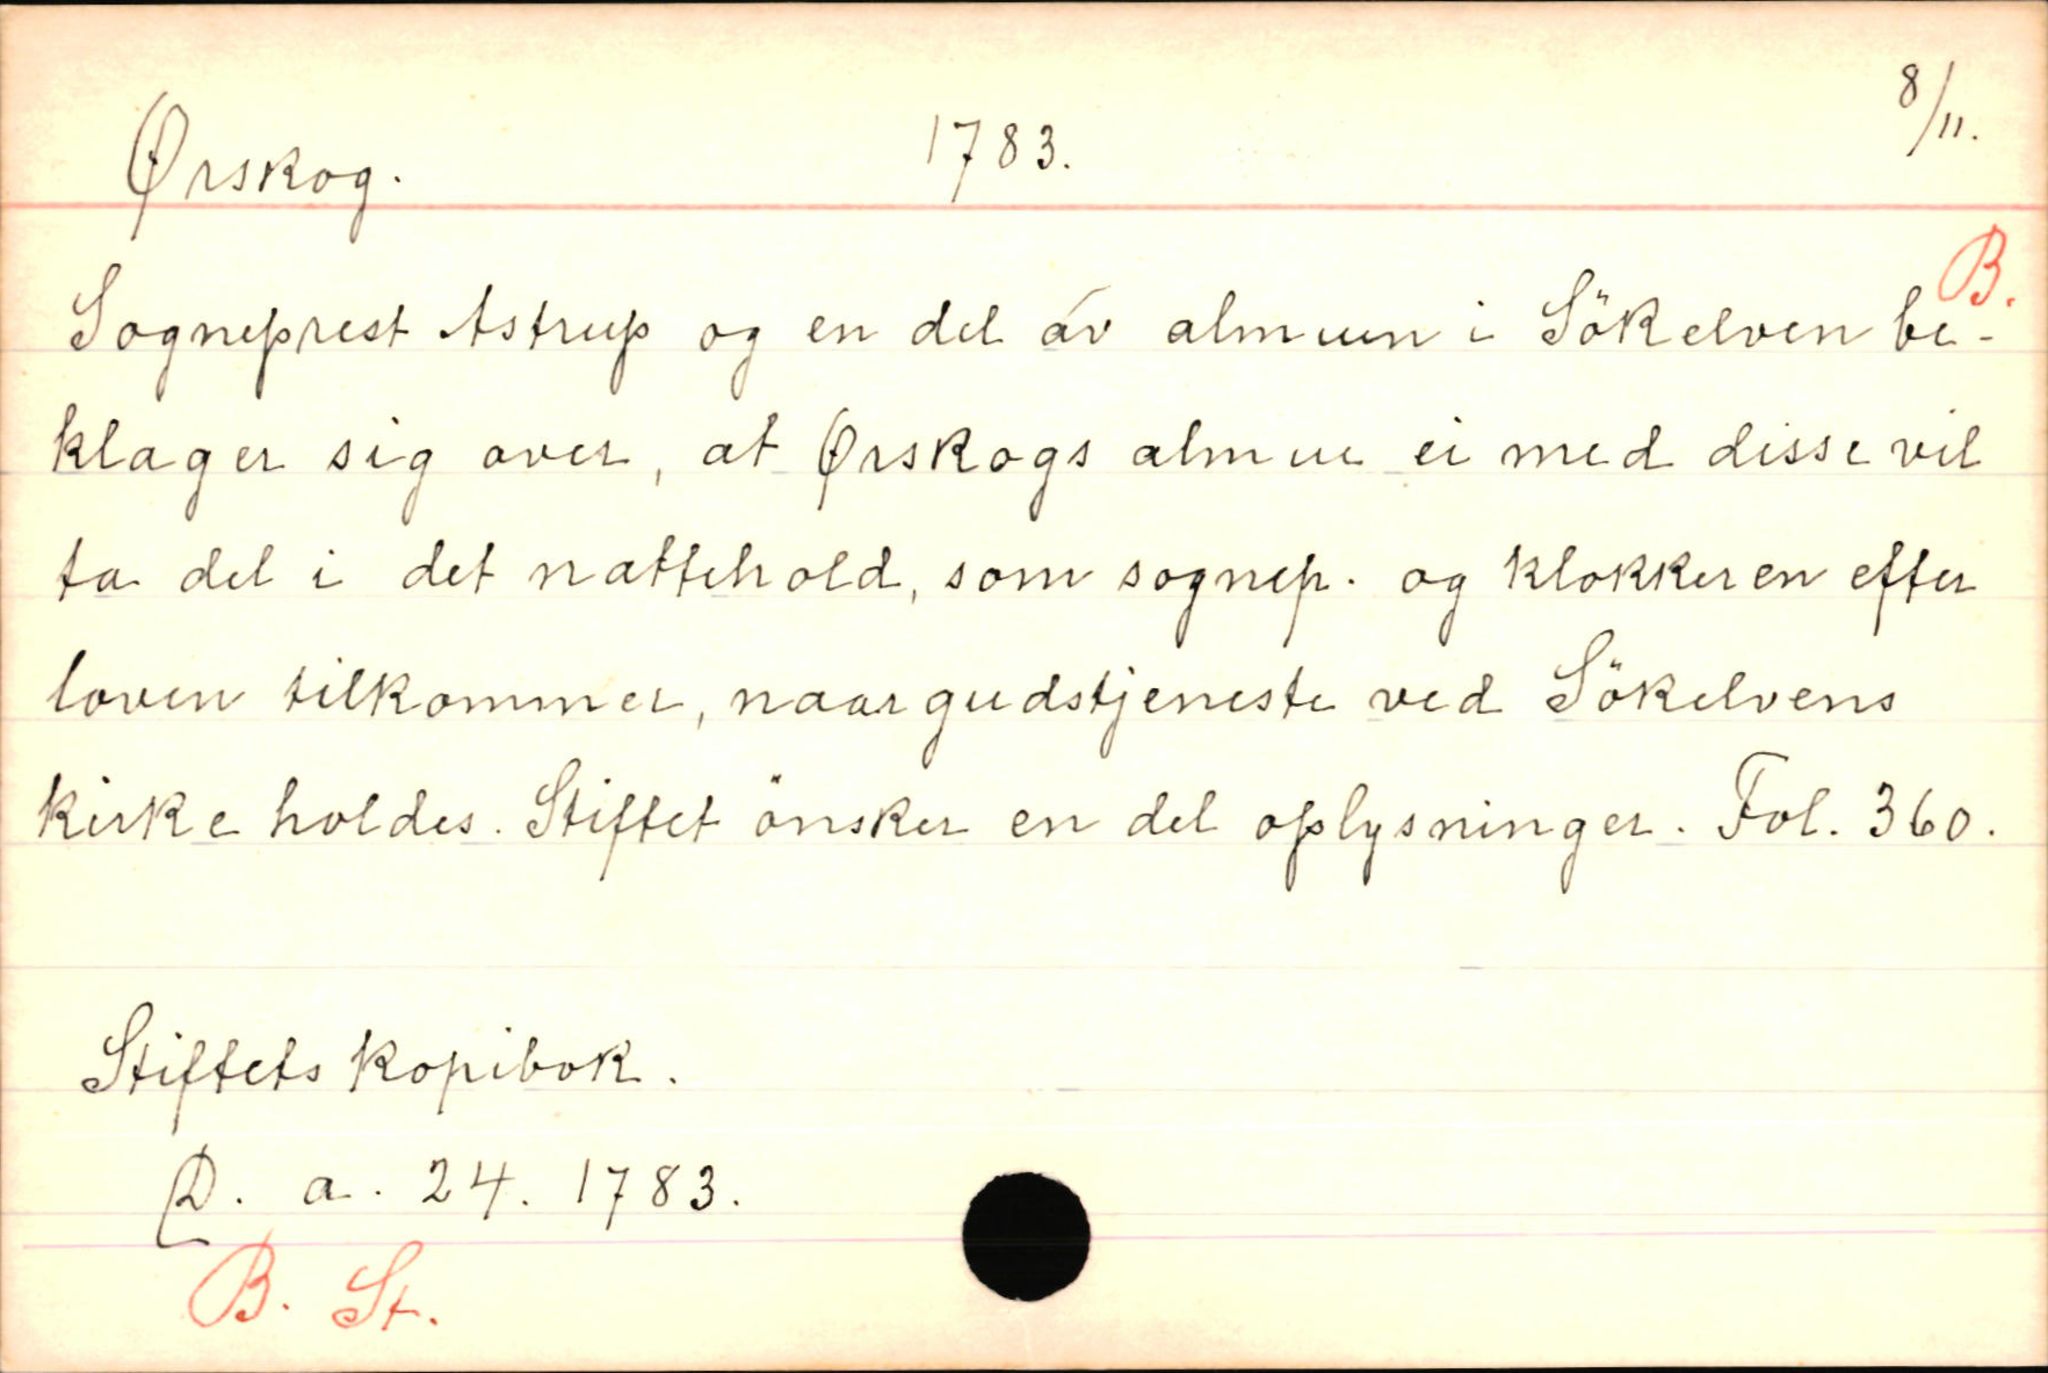 8/11.
Ørskog. 1783.
B.
Sogneprest Astrup og en del av almuen i Sökelven be-
klager sig over, at Ørskogs almue ei med disse vil
ta del i det nattehold, som sognep. og klokkeren efter
loven tilkommer, naar gudstjeneste ved Sökelvens
kirke holdes. Stiftet önsker en del oplysninger. Fol. 360.
Stiftets kopibok.
D. a. 24. 1783.
B. St.